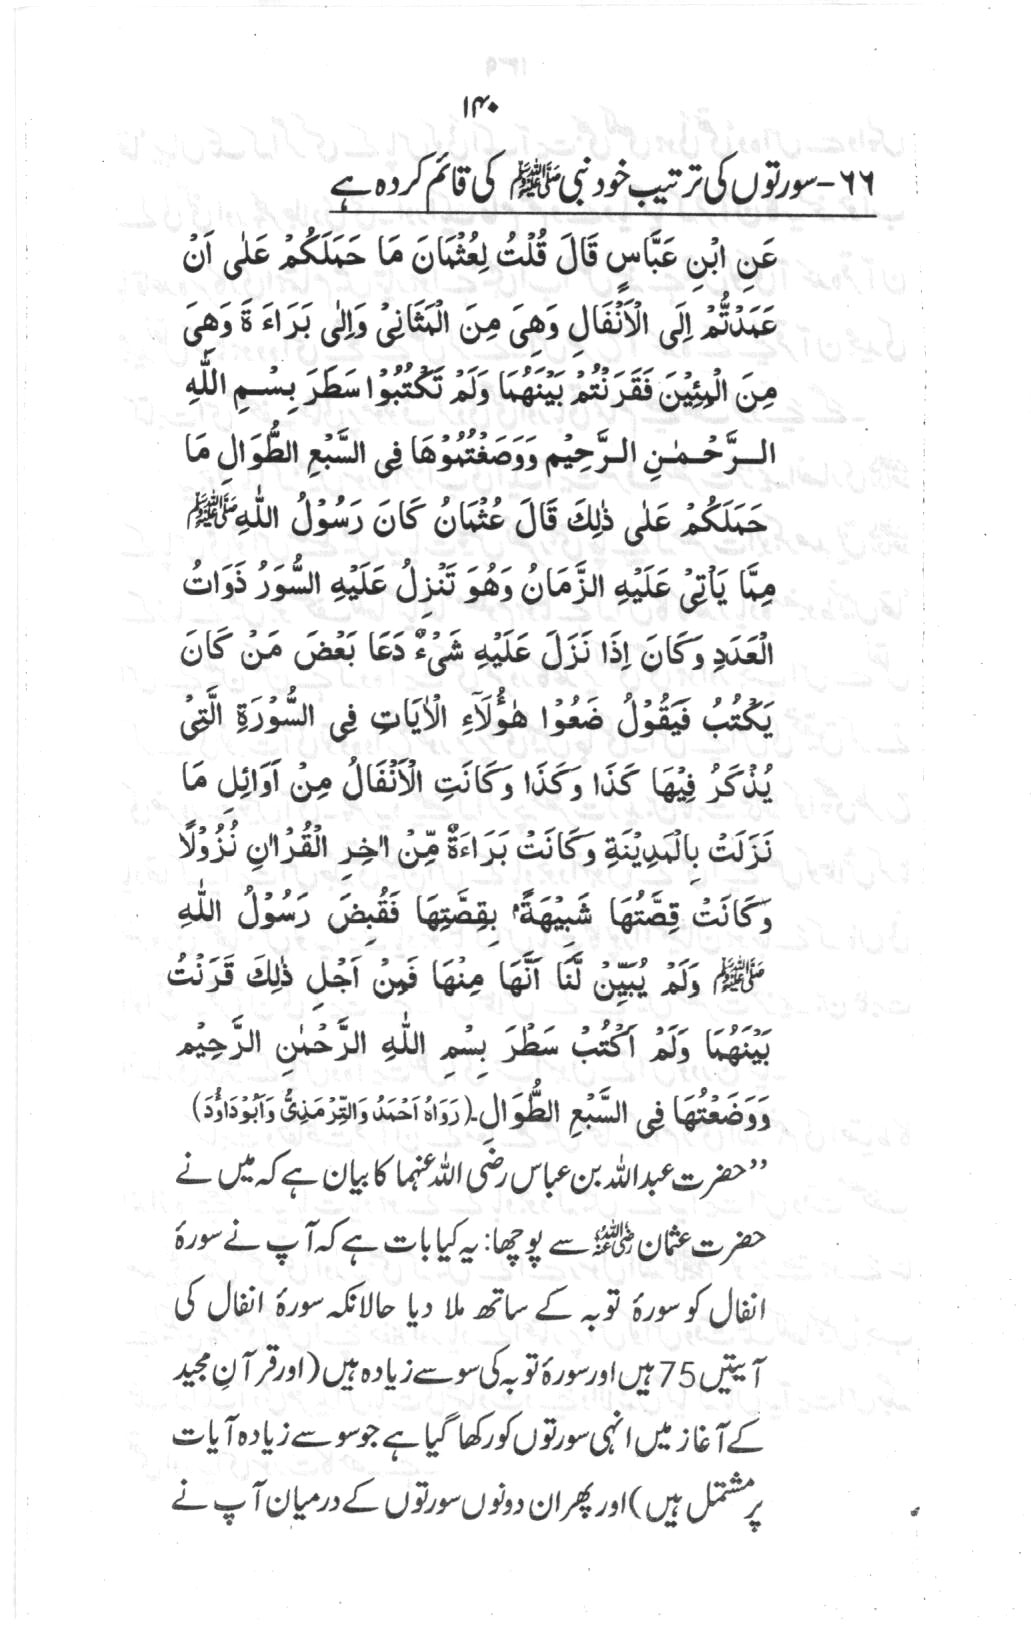 ۱۴۰
۶۶-سورتوں کی ترتیب خود نبی ﷺ کی قائم کردہ ہے
عَنِ ابْنِ عَبَّاسٍ قَالَ قُلْتُ لِعُثْمَانَ مَا حَمَلَكُمْ عَلٰى اَنْ
عَمَدْتُّمْ اِلَى الْاَنْفَالِ وَهِيَ مِنَ الْمَثَانِيْ وَاِلٰى بَرَاءَةَ وَهِيَ
مِنَ الْمِئِيْنَ فَقَرَنْتُمْ بَيْنَهُمَا وَلَمْ تَكْتُبُوْا سَطَرَ بِسْمِ اللّٰهِ
الرَّحْمٰنِ الرَّحِيْمِ وَوَضَعْتُمُوْهَا فِي السَّبْعِ الطُّوَالِ مَا
حَمَلَكُمْ عَلٰى ذٰلِكَ قَالَ عُثْمَانُ كَانَ رَسُوْلُ اللّٰهِ ﷺ
مِمَّا يَاْتِيْ عَلَيْهِ الزَّمَانُ وَهُوَ تَنْزِلُ عَلَيْهِ السُّوَرُ ذَوَاتُ
الْعَدَدِ وَكَانَ اِذَا نَزَلَ عَلَيْهِ شَيْءٌ دَعَا بَعْضَ مَنْ كَانَ
يَكْتُبُ فَيَقُوْلُ ضَعُوْا هٰؤُلَآءِ الْاٰيَاتِ فِي السُّوْرَةِ الَّتِيْ
يُذْكَرُ فِيْهَا كَذَا وَكَذَا وَكَانَتِ الْاَنْفَالُ مِنْ اَوَائِلِ مَا
نَزَلَتْ بِالْمَدِيْنَةِ وَكَانَتْ بَرَاءَةٌ مِّنْ اٰخِرِ الْقُرْاٰنِ نُزُوْلًا
وَكَانَتْ قِصَّتُهَا شَبِيْهَةً بِقِصَّتِهَا فَقُبِضَ رَسُوْلُ اللّٰهِ
ﷺ وَلَمْ يُبَيِّنْ لَّنَا اَنَّهَا مِنْهَا فَمِنْ اَجْلِ ذٰلِكَ قَرَنْتُ
بَيْنَهُمَا وَلَمْ اَكْتُبْ سَطْرَ بِسْمِ اللّٰهِ الرَّحْمٰنِ الرَّحِيْمِ
وَوَضَعْتُهَا فِي السَّبْعِ الطُّوَالِ۔(رَوَاهُ اَحْمَدُ وَالتِّرْمَذِيُّ وَاَبُوْدَاوٗدَ)
”حضرت عبداللہ بن عباس رضی اللہ عنہما کا بیان ہے کہ میں نے
حضرت عثمان رضی اللہ عنہ سے پوچھا: یہ کیا بات ہے کہ آپ نے سورۂ
انفال کو سورۂ توبہ کے ساتھ ملا دیا حالانکہ سورۂ انفال کی
آیتیں 75 ہیں اور سورۂ توبہ کی سو سے زیادہ ہیں (اور قرآنِ مجید
کے آغاز میں انہی سورتوں کو رکھا گیا ہے جو سو سے زیادہ آیات
پر مشتمل ہیں) اور پھر ان دونوں سورتوں کے درمیان آپ نے